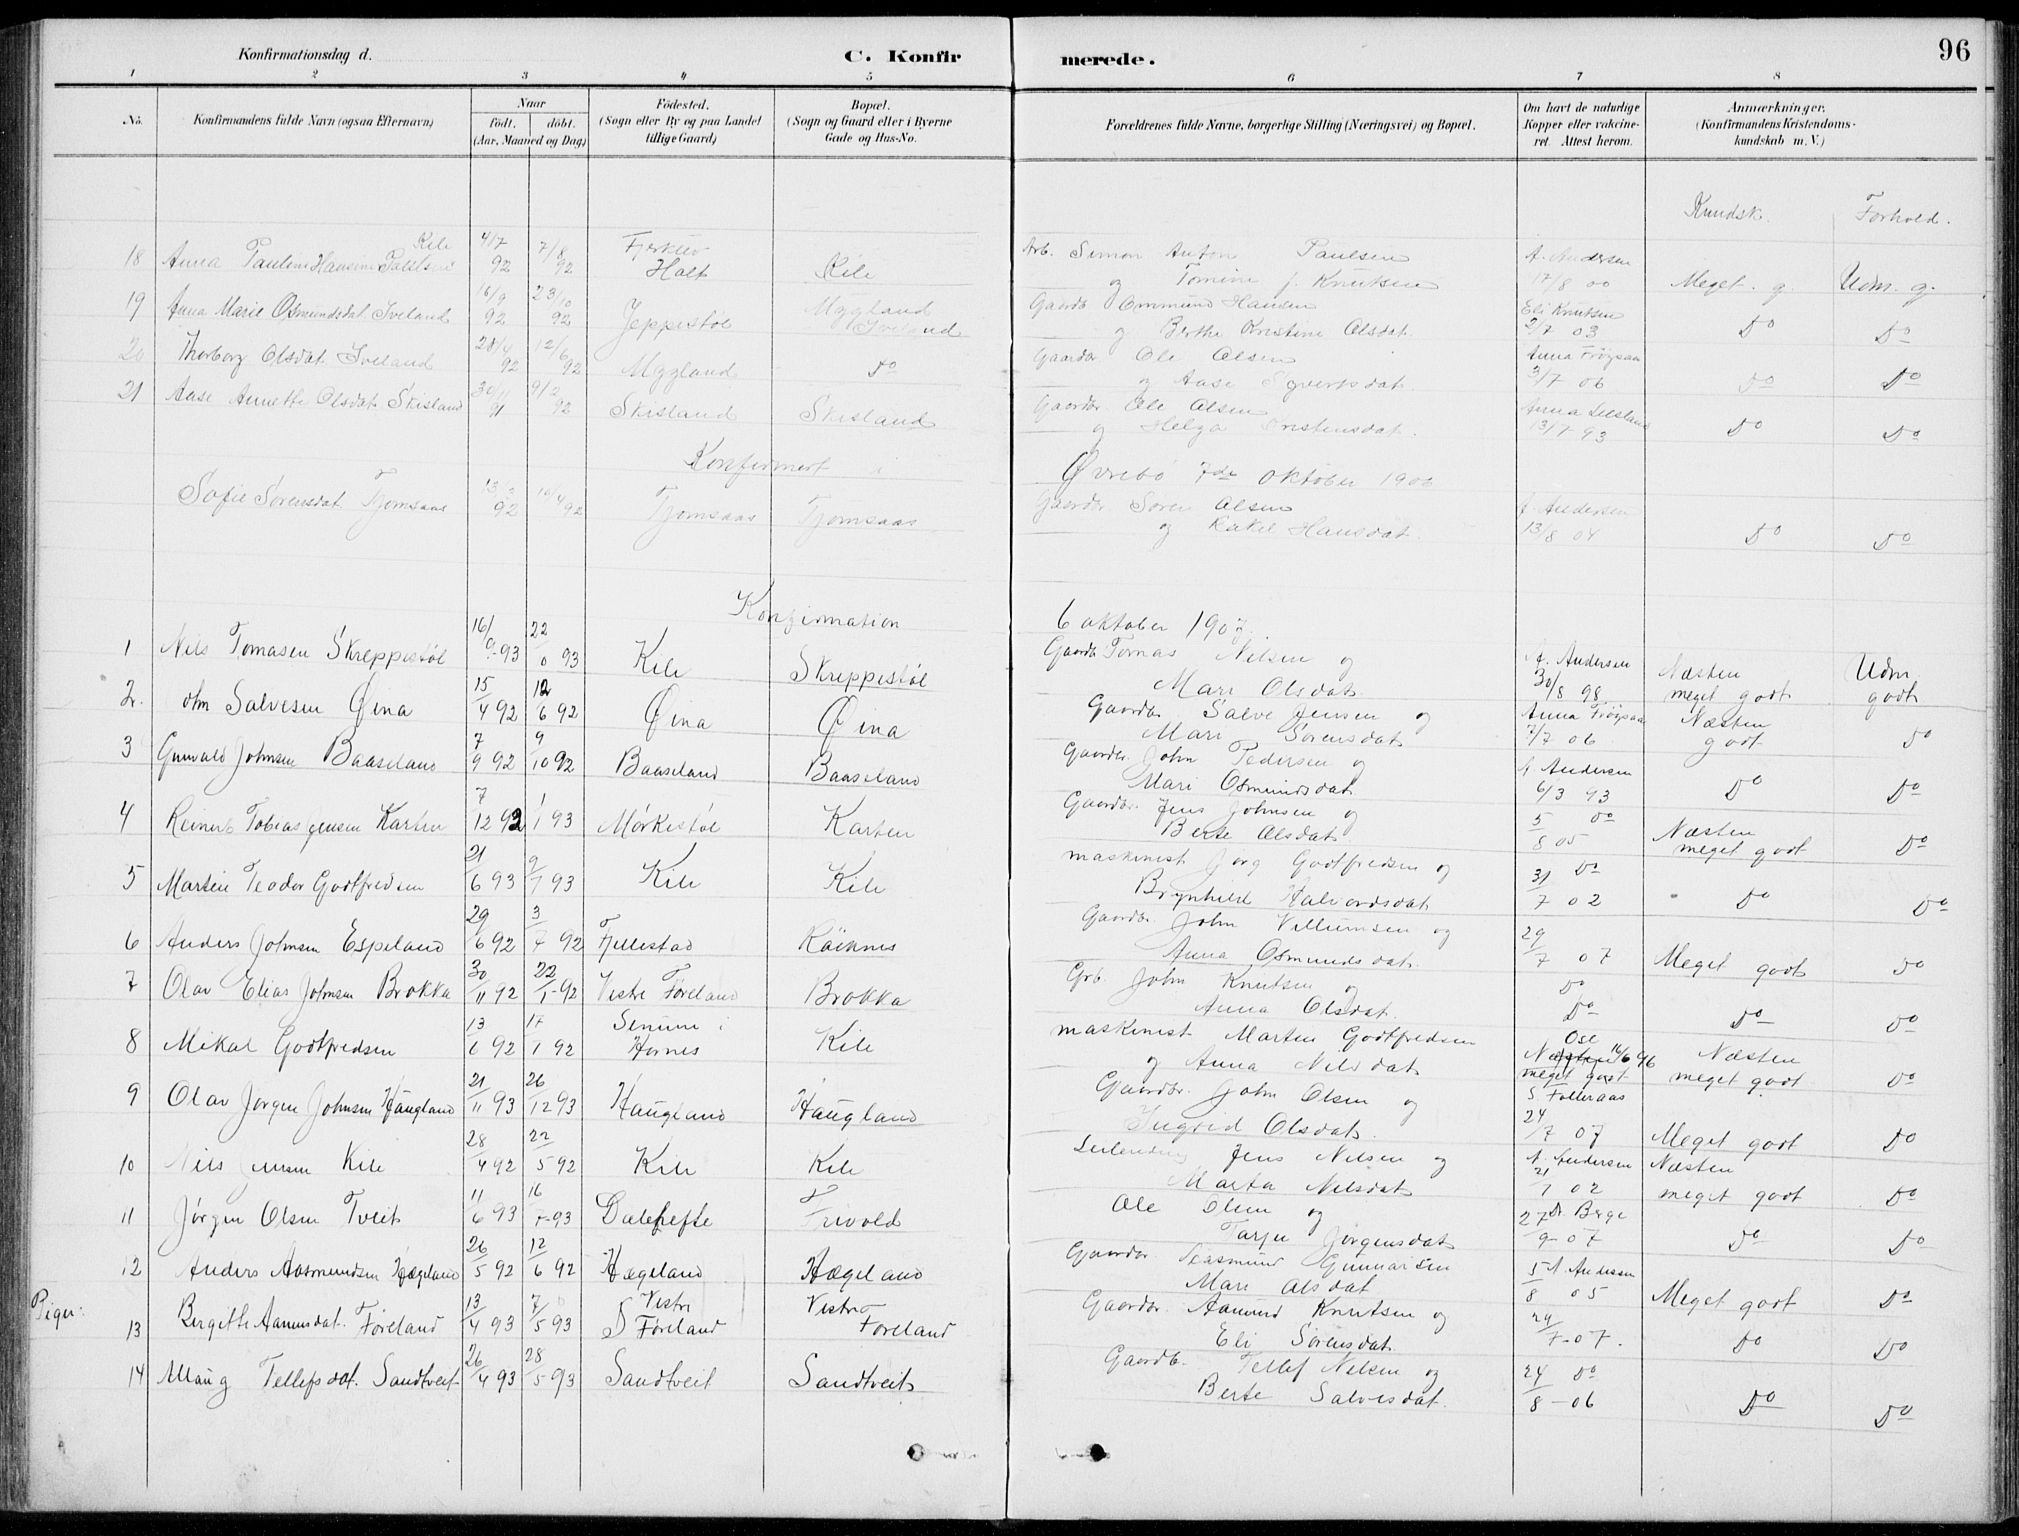 96
Konfirmationsdag d.
C. Konfirmerede.
1 2 3 4 5 6 7 8
No.
Konfirmandens fulde Navn (ogsaa Efternavn)
Naar
födt. döbt.
(Aar, Maaned og Dag)
Födested.
(Sogn eller By og paa Landet
tillige Gaard)
Bopæl.
(Sogn og Gaard eller i Byerne
Gade og Hus-No.
Forældrenes fulde Navne, borgerlige Stilling (Næringsvei) og Bopæl.
Om havt de naturlige
Kopper eller vakcine-
ret. Attest herom.
Anmærkninger.
(Konfirmandens Kristendoms-
kundskab m. V.)
Kundsk. Forhold.
18 Anna Pauline Hansine Kile 4/7 92 7/8 92 Holt Kile Arb. Simon Anton Paulsen
og Tomine f. Knutsen A. Andersen 17/8 00 Meget. g. Udm. g.
19 Anna Marie Osmundsdat. Iveland 16/9 92 23/10 92 Jeppestøl Mygland Iveland Gaardb. Ommund Hansen
og Berthe Kristine Olsdat. Eli Knutsen 2/7 03 Do Do
20 Thorborg Olsdat. Iveland 28/4 92 12/6 92 Mygland Do Gaardbr Ole Olsen
og Aase Syvertsdat. 3/7 06 Do Do
21 Aase Annette Olsdat. Skisland 30/11 91 9/2 92 Skisland Skisland Gaardbr. Ole Olsen
og Helga 13/7 93 Do Do
Konfirmert i Øvrebö 7de oktober 1906
Sofie Sørensdat. Tjomsaas 92 92 Tjomsaas Tjomsaas Gaardbr Søren Olsen
og Rakel Hansdat. A. Andersen 13/8 04 Do Do
Konfirmation 6 oktober 1907.
1 Nils Tomasen Skreppestøl 16/ 93 22 93 Kile Skreppestøl Gaardb Tomas Nilsen og
Mari Olsdat. A. Andersen 30/8 98 Næsten meget godt Udm. godt
2. Salvesen Øina 15/4 92 12/6 92 Øina Øina Gaardbr Salve Jensen og
Mari Sørensdat. 7/7 06 Næsten godt Do
3 Gunvald Johnsen Baaseland 7/9 92 9/10 92 Baaseland Baaseland Gaardbr. John Pedersen og
Mari Osmundsdat. A. Andersen 6/3 93 Do Do
4 Reinert Tobias Jensen Karten 7/12 92 1/1 93 Mørkestøl Karten Gaardbr. Jens Johnsen og
Berte Olsdat. 5/8 05 Do Næsten meget godt Do
5 Martin Teodor Godtfredsen 21/6 93 93 Kile Kile maskinist Jørg Godtfredsen og
Brynhild Halvordsdat. 31/7 02 Do Do Do
6 Anders Johnsen Espeland 29/6 92 3/7 92 Fjellestad Røiknes Gaardbr. John Villumsen og
Anna Osmundsdat. 29/7 07 Meget godt Do
7 Olav Elias Johnsen Brokka 30/11 92 22/ 92 Vestre Føreland Brokka Grb. John Knutsen og
Anna Olsdat. Do Do Do Do
8 Mikal Godtfredsen 13/6 92 17/ 92 Senum i Hornes Kile maskinist Martin Godtfredsen
og Anna Nilsdat. Ose 16/6 96 Næsten meget godt Do
9 Olav Jørgen Johnsen Haugland 21/11 93 26/12 93 Haugland Haugland Gaardbr. John Olsen og
Ingrid Olsdat. 24/7 07 Meget godt Do
10 Nils Jensen Kile 28/4 92 22/5 92 Kile Kile Jens Nilsen og
Marta Nilsdat. A. Andersen 21/ 02 Næsten meget godt Do
11 Jørgen Olsen Tveit 11/6 93 16/7 93 Dalehefte Frivold Ole Olsen og
Tarju Jørgensdat. Dr. Berge 27/9 07 Do Do
12 Anders Aasmundsen Hægeland 26/5 92 12/6 92 Hægeland Hægeland Gaardbr. Aasmund Gunnarsen
Mari Olsdat A. Andersen 5/8 05 Meget godt Do
Piger:
13 Bergitte Føreland 13/4 93 7/5 93 Vestre Føreland Vestre Føreland Gaardbr. Aamund Knutsen og
Eli Sørensdat. 29/7-07. Do Do
14 Maug Tellefsdat. Sandtveit 26/4 93 28/5 93 Sandtveit Sandtveit Gaardb. Tellef Nilsen og
Berte Salvesdat. 24/8-06 Do Do Do